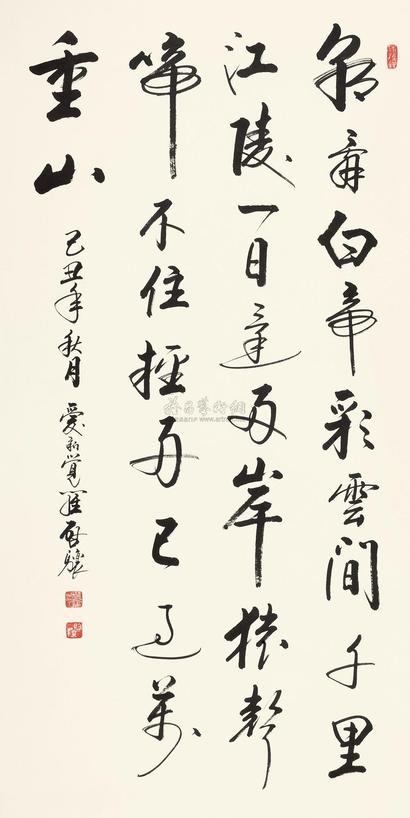 朝辞白帝彩雲間千里
江陵一日還兩岸猿聲
啼不住輕舟已過萬
重山
己丑年秋月 愛新覺羅啟驤